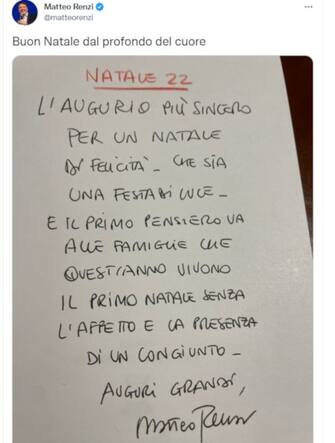 Matteo Renzi
@matteorenzi
Buon Natale dal profondo del cuore
NATALE 22
L'AUGURIO PIÙ SINCERO
PER UN NATALE
DI FELICITÀ - CHE SIA
UNA FESTA DI LUCE -
E IL PRIMO PENSIERO VA
ALLE FAMIGLIE CHE
QUEST'ANNO VIVONO
IL PRIMO NATALE SENZA
L'AFFETTO E LA PRESENZA
DI UN CONGIUNTO -
AUGURI GRANDI,
Matteo Renzi